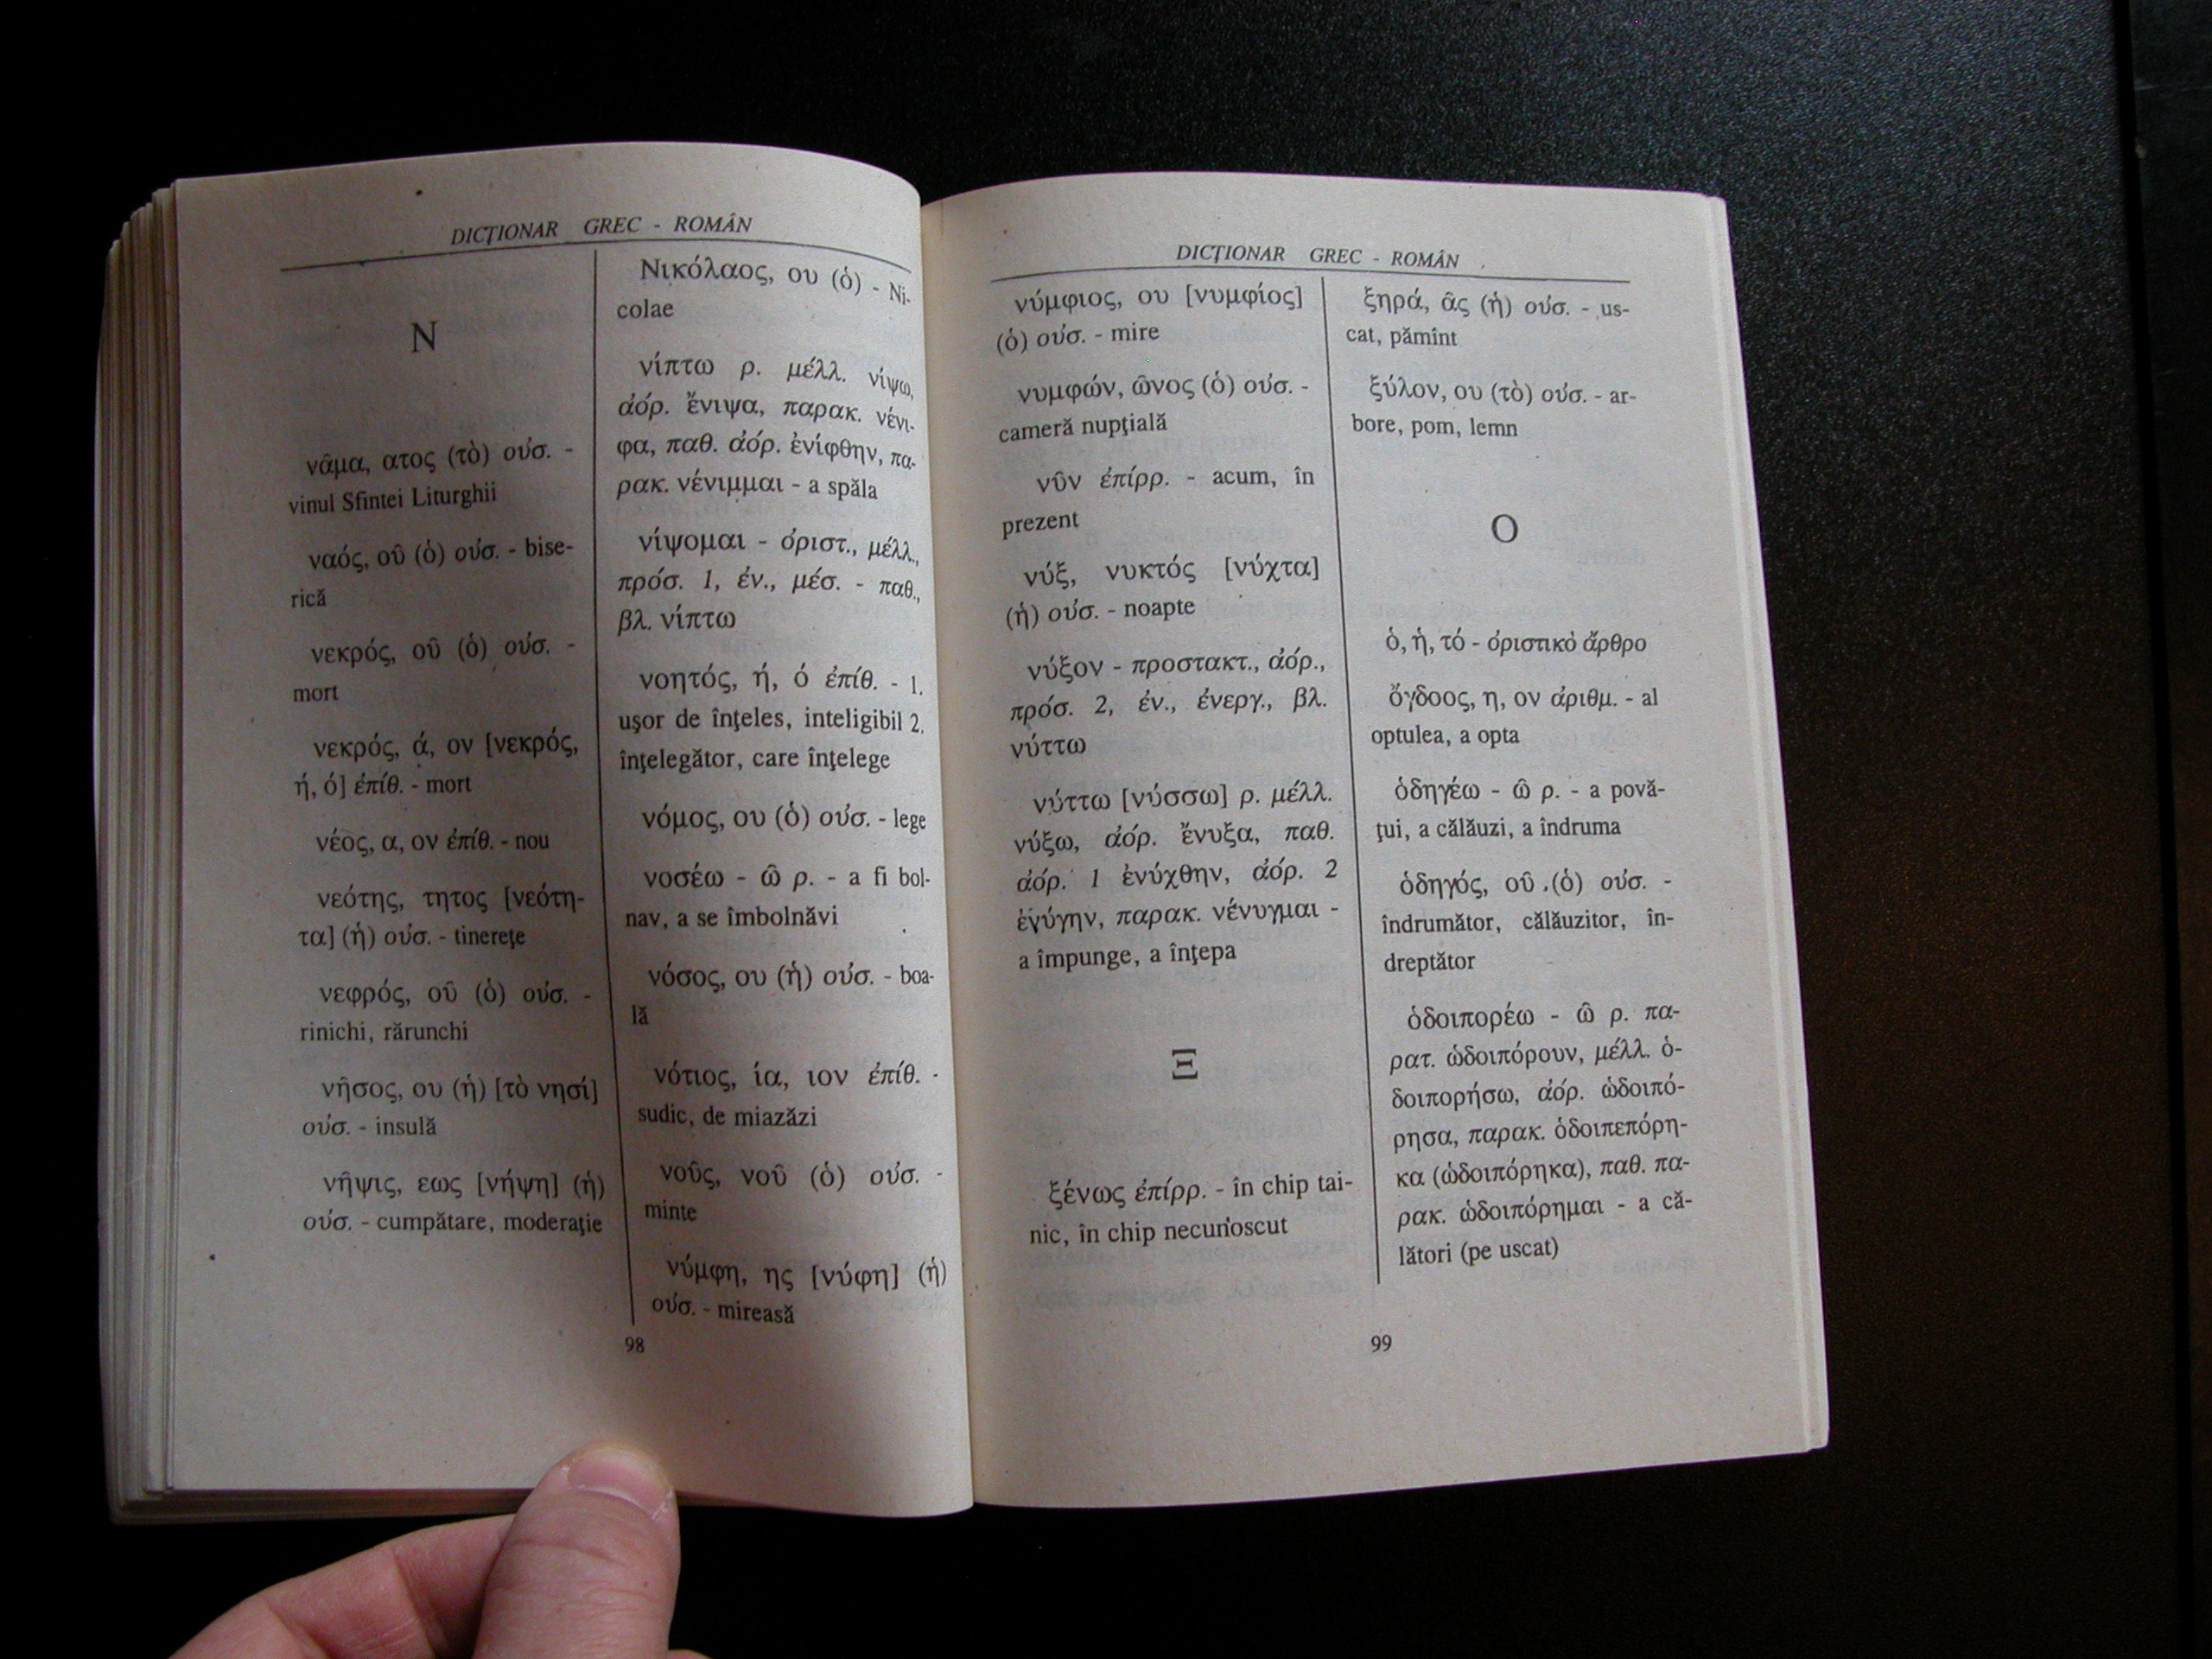 DICŢIONAR GREC - ROMÂN
N
νᾶμα, ατος (τὸ) οὐσ. -
vinul Sfintei Liturghii
ναός, οῦ (ὁ) οὐσ. - bise-
rică
νεκρός, οῦ (ὁ) οὐσ. -
mort
νεκρός, ά, ον [νεκρός,
ή, ό] ἐπίθ. - mort
νέος, α, ον ἐπίθ. - nou
νεότης, τητος [νεότη-
τα] (ἡ) οὐσ. - tinereţe
νεφρός, οῦ (ὁ) οὐσ. -
rinichi, rărunchi
νῆσος, ου (ἡ) [τὸ νησί]
οὐσ. - insulă
νῆψις, εως [νήψη] (ἡ)
οὐσ. - cumpătare, moderaţie
Νικόλαος, ου (ὁ) - Ni-
colae
νίπτω ρ. μέλλ. νίψω,
ἀόρ. ἔνιψα, παρακ. νένι-
φα, παθ. ἀόρ. ἐνίφθην, πα-
ρακ. νένιμμαι - a spăla
νίψομαι - ὁριστ., μέλλ.,
πρόσ. 1, ἐν., μέσ. - παθ.,
βλ. νίπτω
νοητός, ή, ό ἐπίθ. - 1.
uşor de înţeles, inteligibil 2.
înţelegător, care înţelege
νόμος, ου (ὁ) οὐσ. - lege
νοσέω - ῶ ρ. - a fi bol-
nav, a se îmbolnăvi
νόσος, ου (ἡ) οὐσ. - boa-
lă
νότιος, ία, ιον ἐπίθ. -
sudic, de miazăzi
νοῦς, νοῦ (ὁ) οὐσ. -
minte
νύμφη, ης [νύφη] (ἡ)
οὐσ. - mireasă
98
DICŢIONAR GREC - ROMÂN
νύμφιος, ου [νυμφίος]
(ὁ) οὐσ. - mire
νυμφών, ῶνος (ὁ) οὐσ. -
cameră nupţială
νῦν ἐπίρρ. - acum, în
prezent
νύξ, νυκτός [νύχτα]
(ἡ) οὐσ. - noapte
νύξον - προστακτ., ἀόρ.,
πρόσ. 2, ἐν., ἐνεργ., βλ.
νύττω
νύττω [νύσσω] ρ. μέλλ.
νύξω, ἀόρ. ἔνυξα, παθ.
ἀόρ. 1 ἐνύχθην, ἀόρ. 2
ἐνύγην, παρακ. νένυγμαι -
a împunge, a înţepa
Ξ
ξένως ἐπίρρ. - în chip tai-
nic, în chip necunoscut
ξηρά, ᾶς (ἡ) οὐσ. - us-
cat, pămînt
ξύλον, ου (τὸ) οὐσ. - ar-
bore, pom, lemn
Ο
ὁ, ἡ, τό - ὁριστικὸ ἄρθρο
ὄγδοος, η, ον ἀριθμ. - al
optulea, a opta
ὁδηγέω - ῶ ρ. - a povă-
ţui, a călăuzi, a îndruma
ὁδηγός, οῦ (ὁ) οὐσ. -
îndrumător, călăuzitor, în-
dreptător
ὁδοιπορέω - ῶ ρ. πα-
ρατ. ὡδοιπόρουν, μέλλ. ὁ-
δοιπορήσω, ἀόρ. ὡδοιπό-
ρησα, παρακ. ὁδοιπεπόρη-
κα (ὡδοιπόρηκα), παθ. πα-
ρακ. ὡδοιπόρημαι - a că-
lători (pe uscat)
99